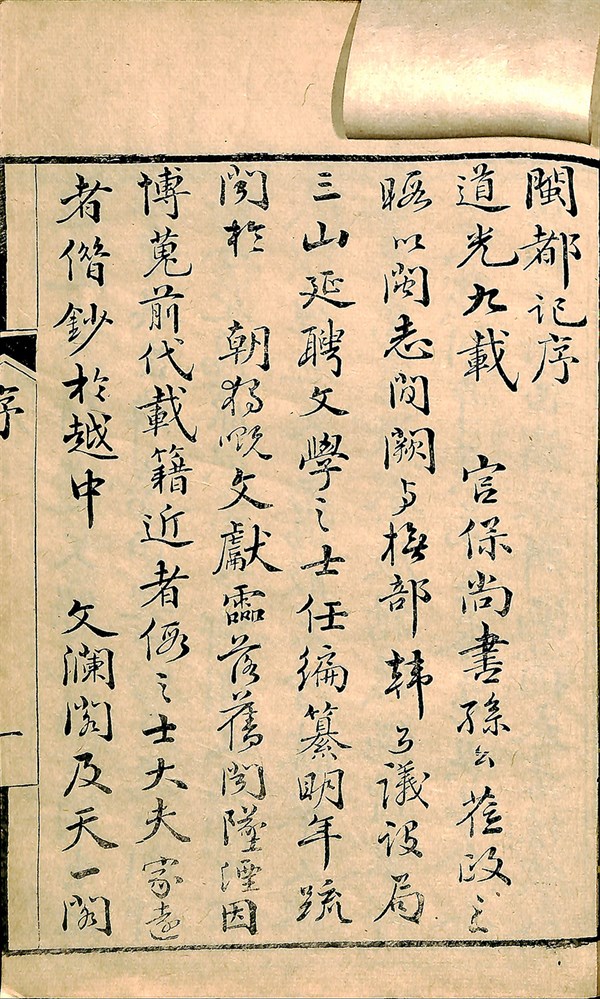 閩都記序
道光九載 宮保尚書孫公蒞政之
暇以閩志閒闕与撫部韓公議設局
三山延聘文學之士任編纂明年疏
聞於 朝猶嘅文獻霝落舊聞墜湮因
博蒐前代載籍近者假之士大夫家遠
者借鈔於越中 文瀾閣及天一閣
序
一